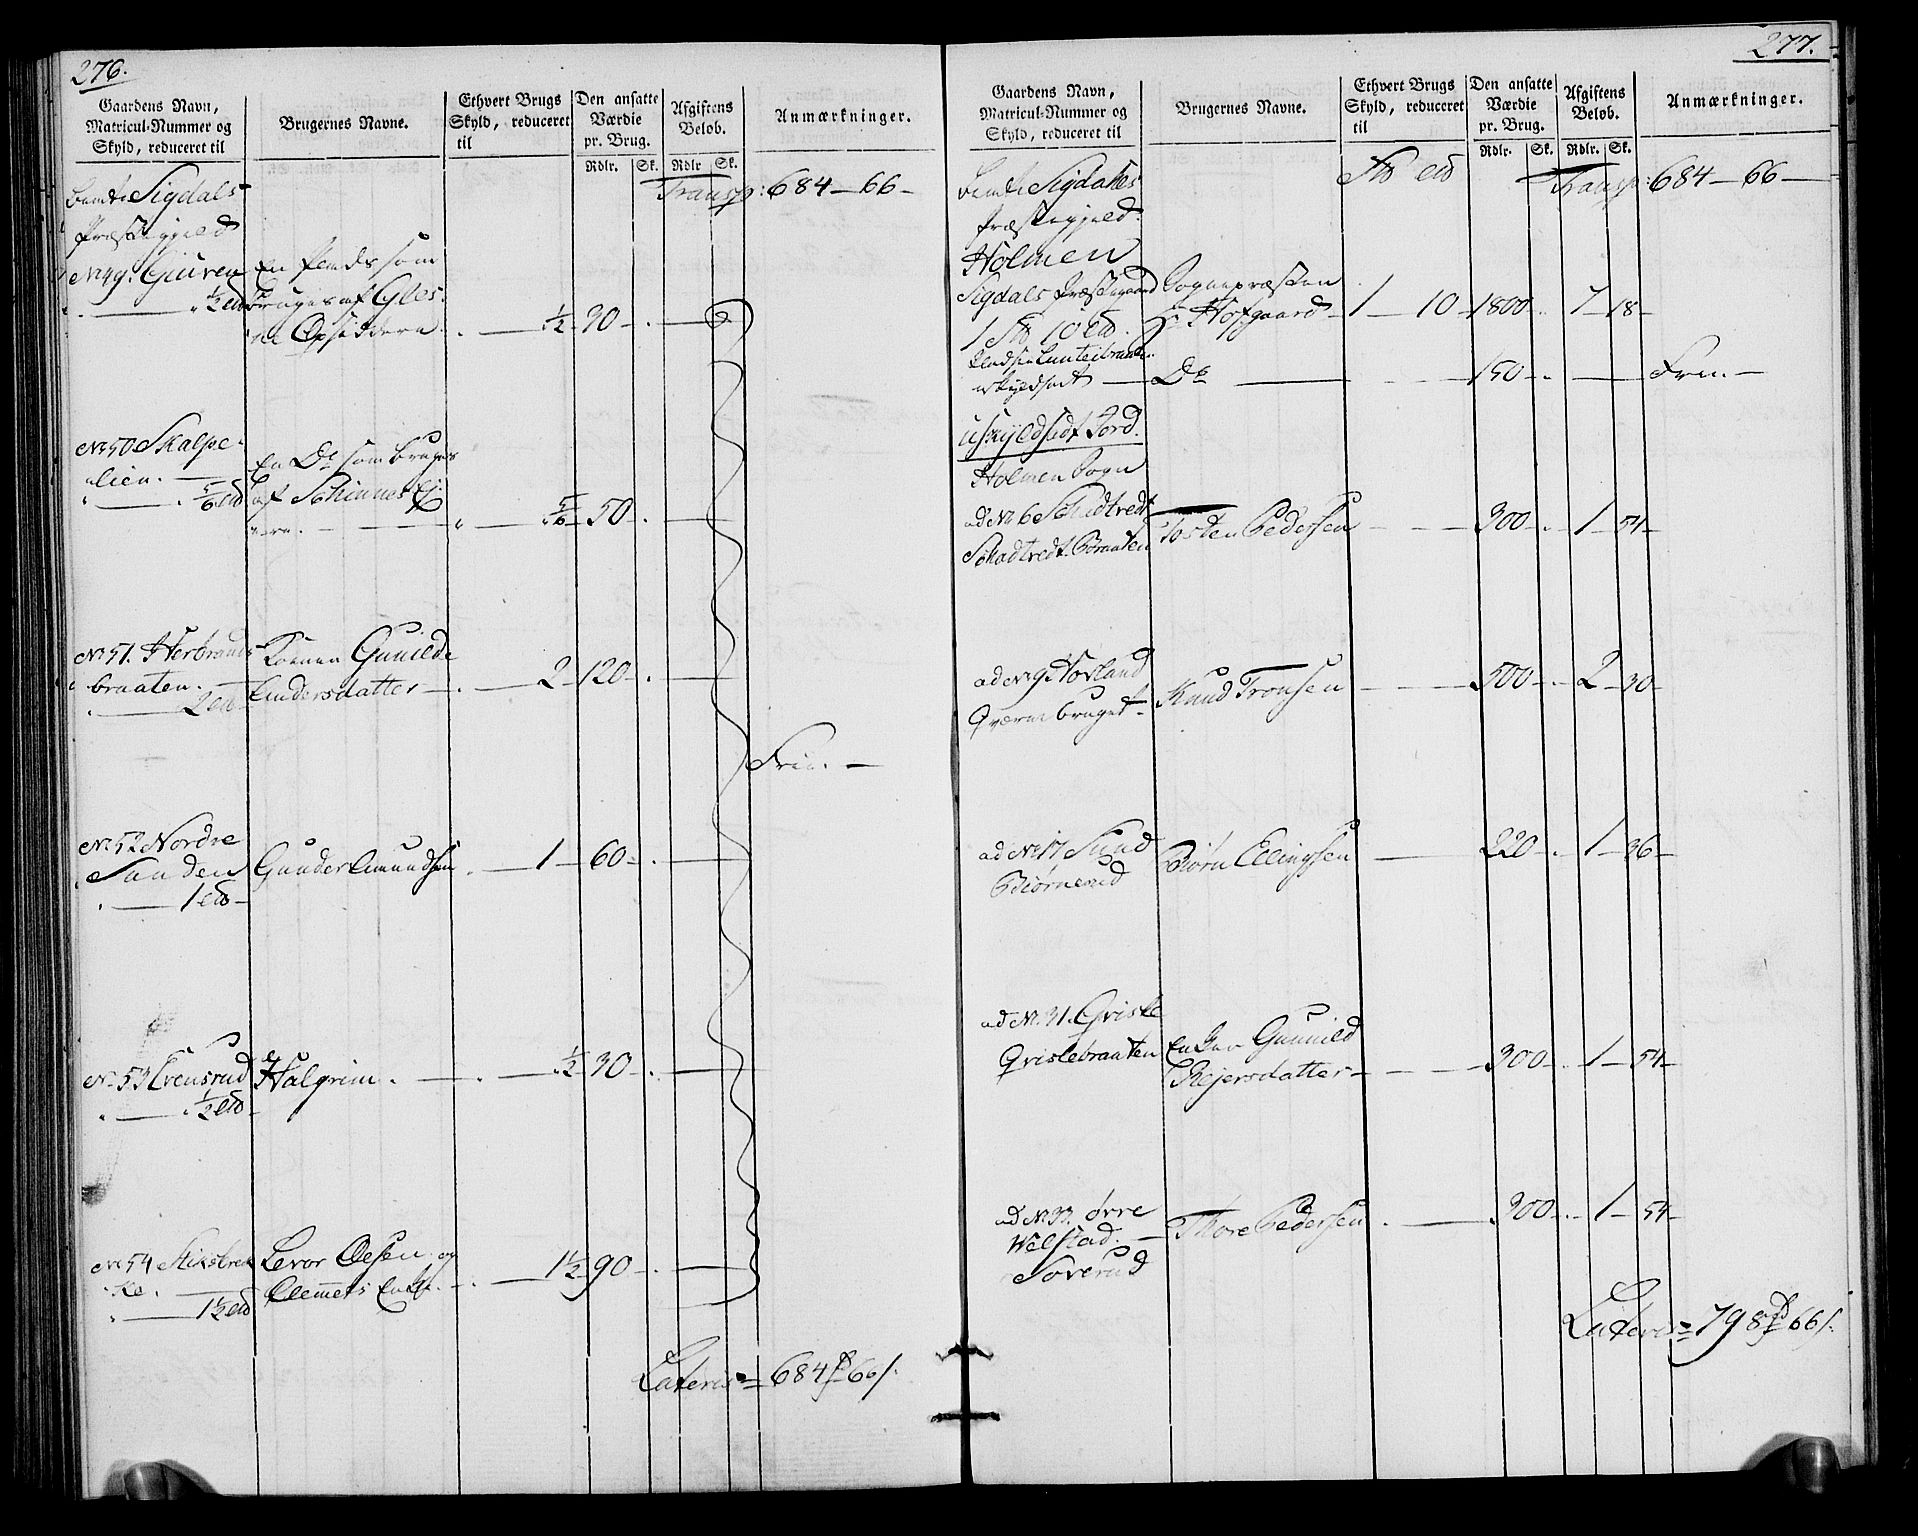 276.
Gaardens Navn,
Matricul-Nummer og
Skyld, reduceret til
Brugernes Navne.
Ethvert Brugs
Skyld, reduceret
til
Den ansatte
Værdie
pr. Brug.
Rdlr. Sk.
Afgiftens
Beløb.
Rdlr Sk.
Anmærkninger.
Transp: 684 - 66 -
Sigdals
Præstegjeld
No 49. Gjuren
½
En Plads som
bruges af
Opsiddere
½ - 30 -
No 50 Skalpe
lien.
5/6
En Do som bruges
af
5/6 - 50 -
No 51. Herbrands
braaten.
2
Konen Gunilde
Andersdatter
2 - 120 -
Frie. -
No 52 Nordre
Sanden
1
Gunder Amundsen
1 - 60 -
No 53 Evensrud
½
Halgrim.
½ - 30 -
No 54
1½
Levor Olesen og
Clemmets Enke
1½ - 90 -
Lateris = 684 66
277.
Gaardens Navn,
Matricul-Nummer og
Skyld, reduceret til
Brugernes Navne.
Ethvert Brugs
Skyld, reduceret
til
Den ansatte
Værdie
pr. Brug.
Rdlr. Sk.
Afgiftens
Beløb.
Rdlr. Sk.
Anmærkninger.
Transp: 684 - 66 -
Sigdals
Præstegjeld.
Holmen
Sigdals Præstegaard
1 10
Sognepræsten
Hr Hofgaard - 1 - 10 - 1800 - 7 - 18 -
uskyldsat - Do - 150 - Frie. -
uskyldsedt Jord.
Holmen Sogn
ad No 6 Skadtvedt
Skadtvedt Braaten
Tosten Pedersen - 300 - 1 - 54 -
ad No 9 Hovland
Qværnbruget
Knud Tronsen - 500 - 2 - 30 -
ad No 17 Sund
Biørnerud
Biørn Ellingsen - 220 - 1 - 36 -
ad No 31. Qvisle
Qvislebraaten
Enken Gunnild
Rejersdatter - 300 - 1 - 54 -
ad No 33. øvre
Welstad.
Soverud
Thore Pedersen - 300 - 1 - 54 -
Lateris = 798 66